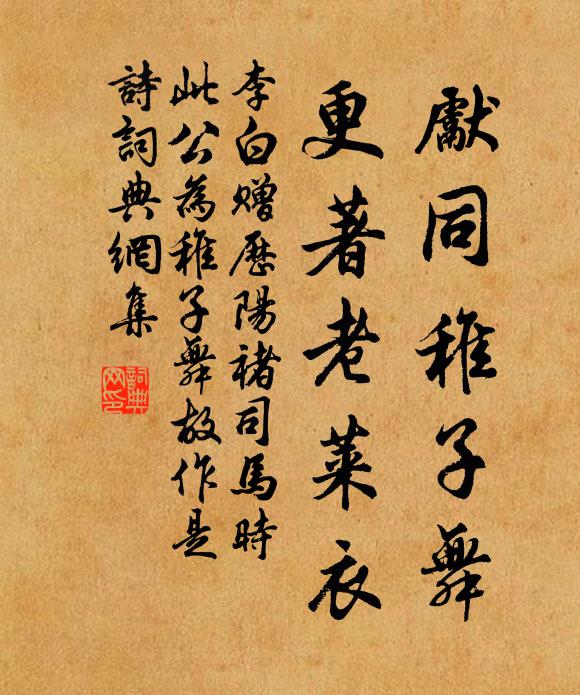 獻同稚子舞
更著老萊衣
李白贈歷陽褚司馬時
此公為稚子舞故作是
詩詞典網集
詞典网印